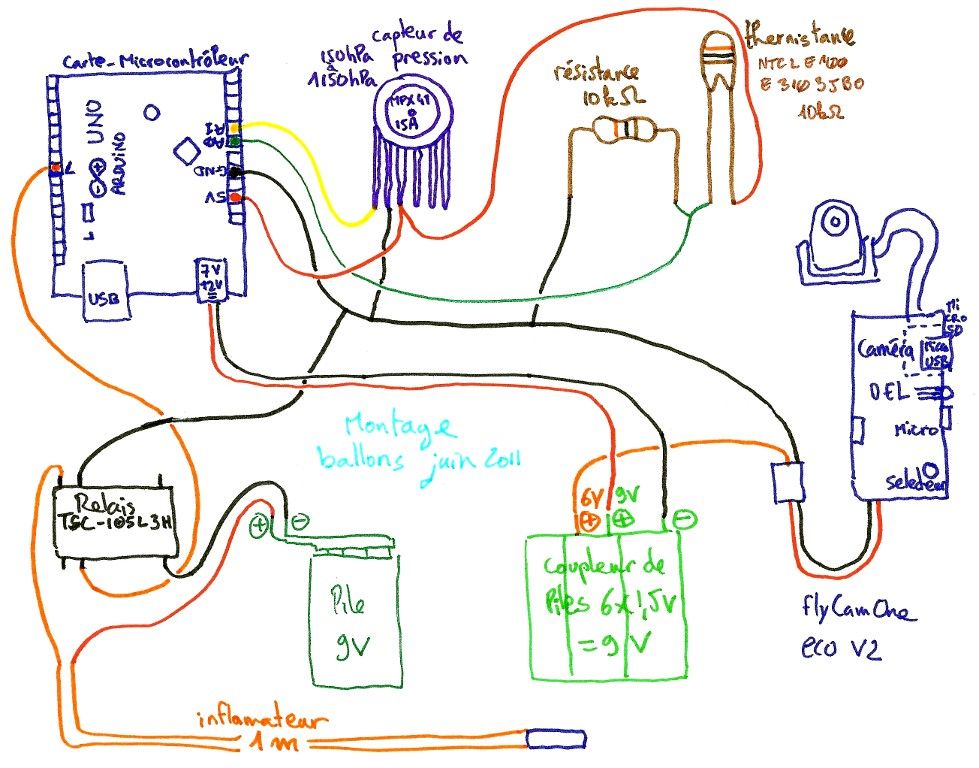 Carte-Microcontrôleur
UNO
ARDUINO
A1
A0
GND
5V
7
L
USB
7V
12V
capteur de
pression
150hPa
à
1150hPa
MPX41
15A
résistance
10kΩ
thermistance
NTCLE100
E3103JB0
10kΩ
Micro
SD
Caméra
Micro
USB
DEL
Micro
selecteur
flyCamOne
eco V2
Montage
ballons juin 2011
Relais
TSC-105L3H
+
-
Pile
9V
6V
9V
+
+
-
coupleur de
Piles 6x1,5V
=9V
inflamateur
1m